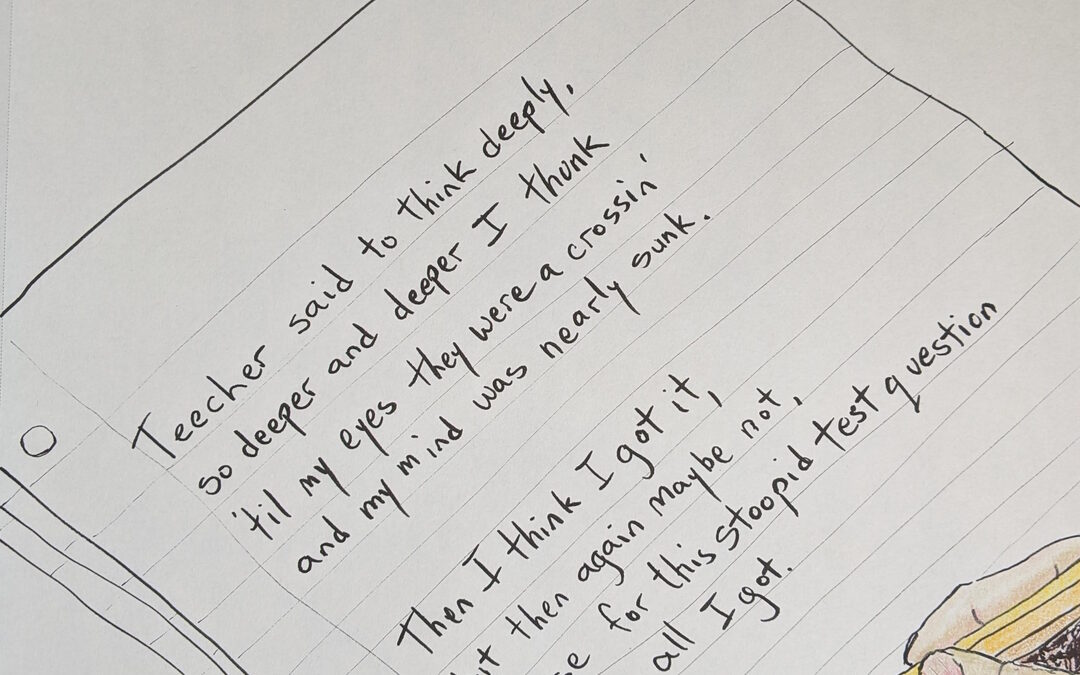 Teecher said to think deeply,
so deeper and deeper I thunk
'til my eyes they were a crossin'
and my mind was nearly sunk.
Then I think I got it,
then again maybe not,
for this stoopid test question
all I got.